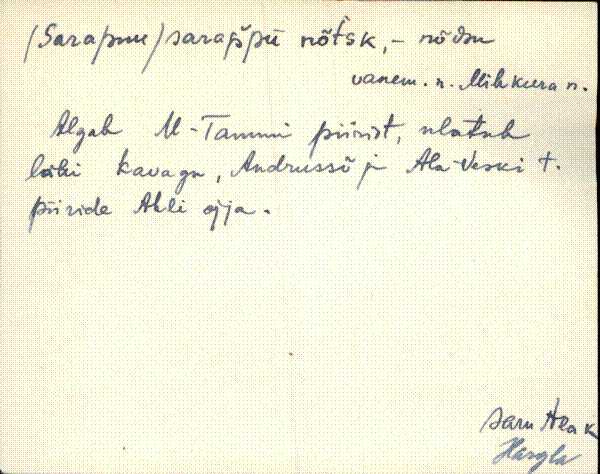 (Sarapuu) sarappū nõtsk, - nõdsu
vanem. n. Mihkura n.
Algab M-Tammi piirist, ulatub
läbi Kavagu, Andrussõ ja Ala-Veski t.
piiride Ahli ojja.
Saru Ala k
Hargla